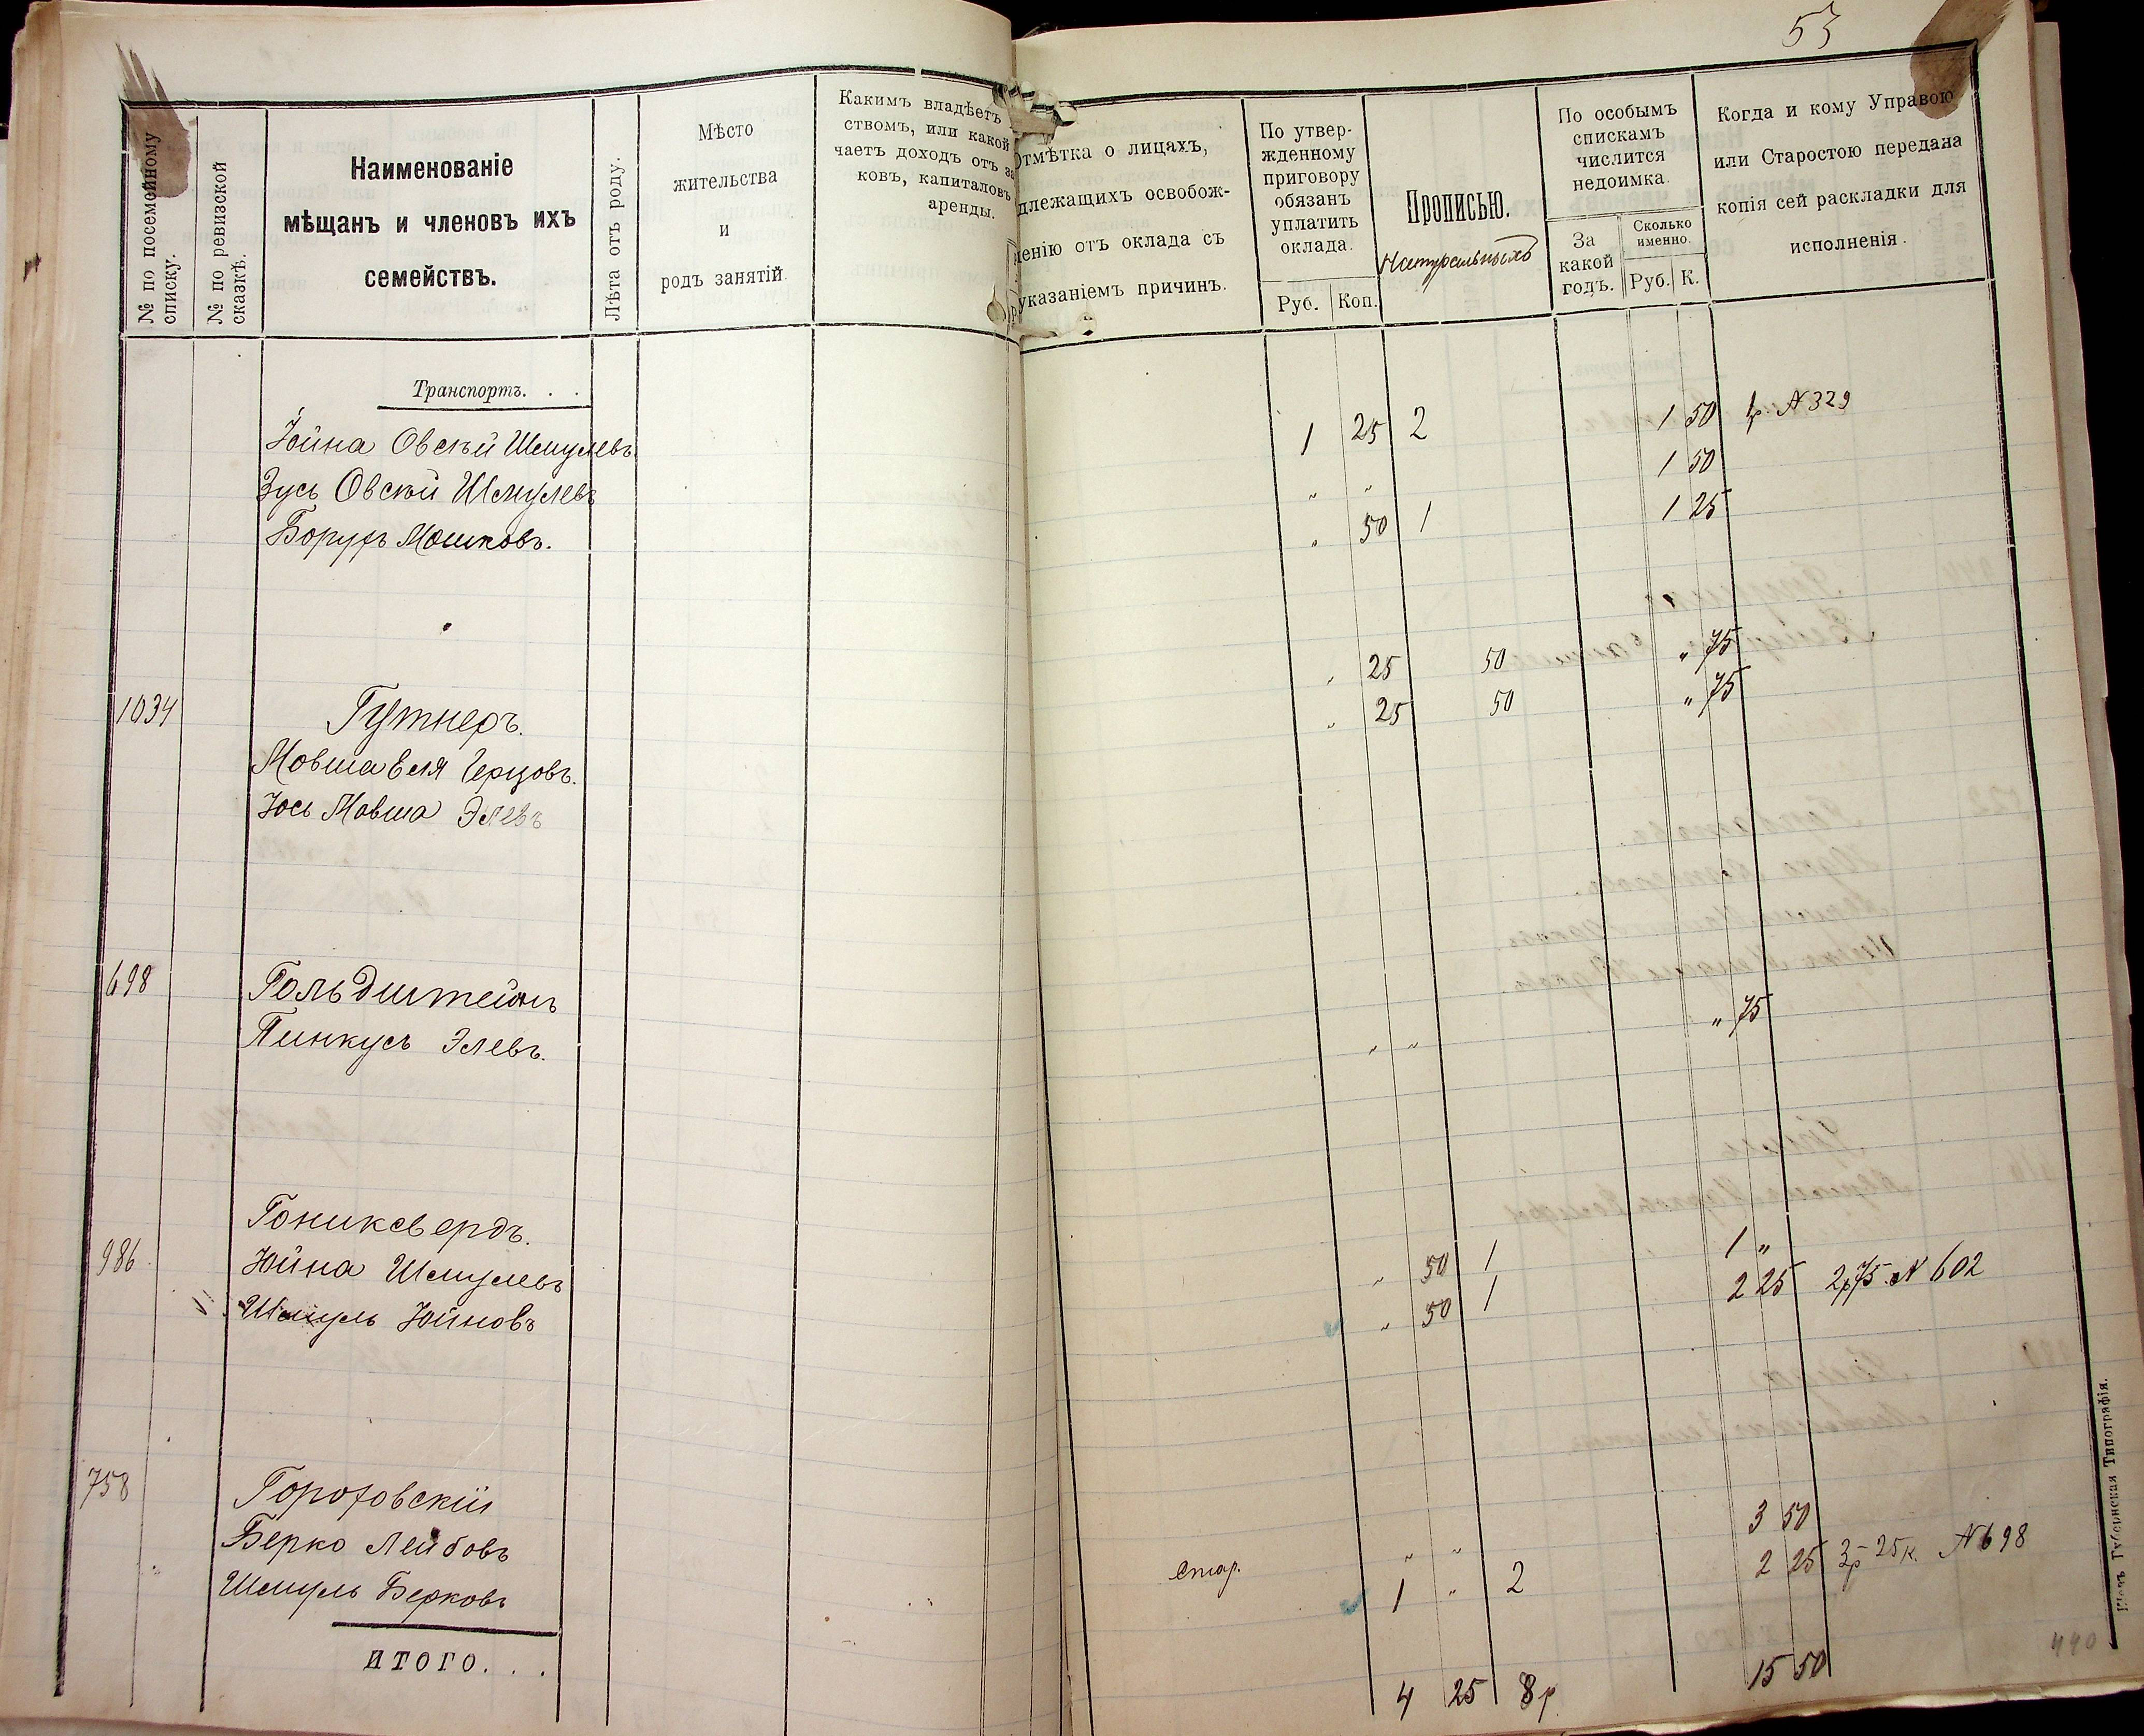 53
№ по посемейному списку.
№ по ревизской сказкѣ.
Наименованіе
мѣщанъ и членовъ ихъ
семействъ.
Лѣта отъ роду.
Мѣсто
жительства
и
родъ занятій.
Какимъ владѣетъ
ствомъ, или какой
чаетъ доходъ отъ за
ковъ, капиталовъ
аренды.
Отмѣтка о лицахъ,
длежащихъ освобож-
ненію отъ оклада съ
указаніемъ причинъ.
По утвер-
жденному
приговору
обязанъ
уплатить
оклада.
Руб. Коп.
Прописью.
Натуральныхъ
По особымъ
спискамъ
числится
недоимка.
За
какой
годъ.
Сколько
именно.
Руб. К.
Когда и кому Управою
или Старостою передана
копія сей раскладки для
исполненія.
Транспортъ. . .
Іойна Овсѣй Шмулевъ 1 25 2 1 50 1р. № 329
Зусь Овсѣй Шмулевъ " " 1 50
Борухъ Мошковъ. " 50 1 1 25
1034 Гутнеръ.
Мовша Еля Герцовъ. " 25 50 " 75
Іось Мовша Элевъ " 25 50 " 75
698 Гольдштейнъ
Пинкусъ Элевъ. " " " 75
Гониксвердъ.
986 Іойна Шмулевъ " 50 1 1 "
Шмуль Іойновъ " 50 1 2 25 2р75 № 602
758 Гороховскій
Берко Лейбовъ стар. " " 3 50
Шмуль Берковъ 1 " 2 2 25 3р 25к. № 698
ИТОГО. . . 4 25 8р 15 50
440
Кіевъ Губернская Типографія.